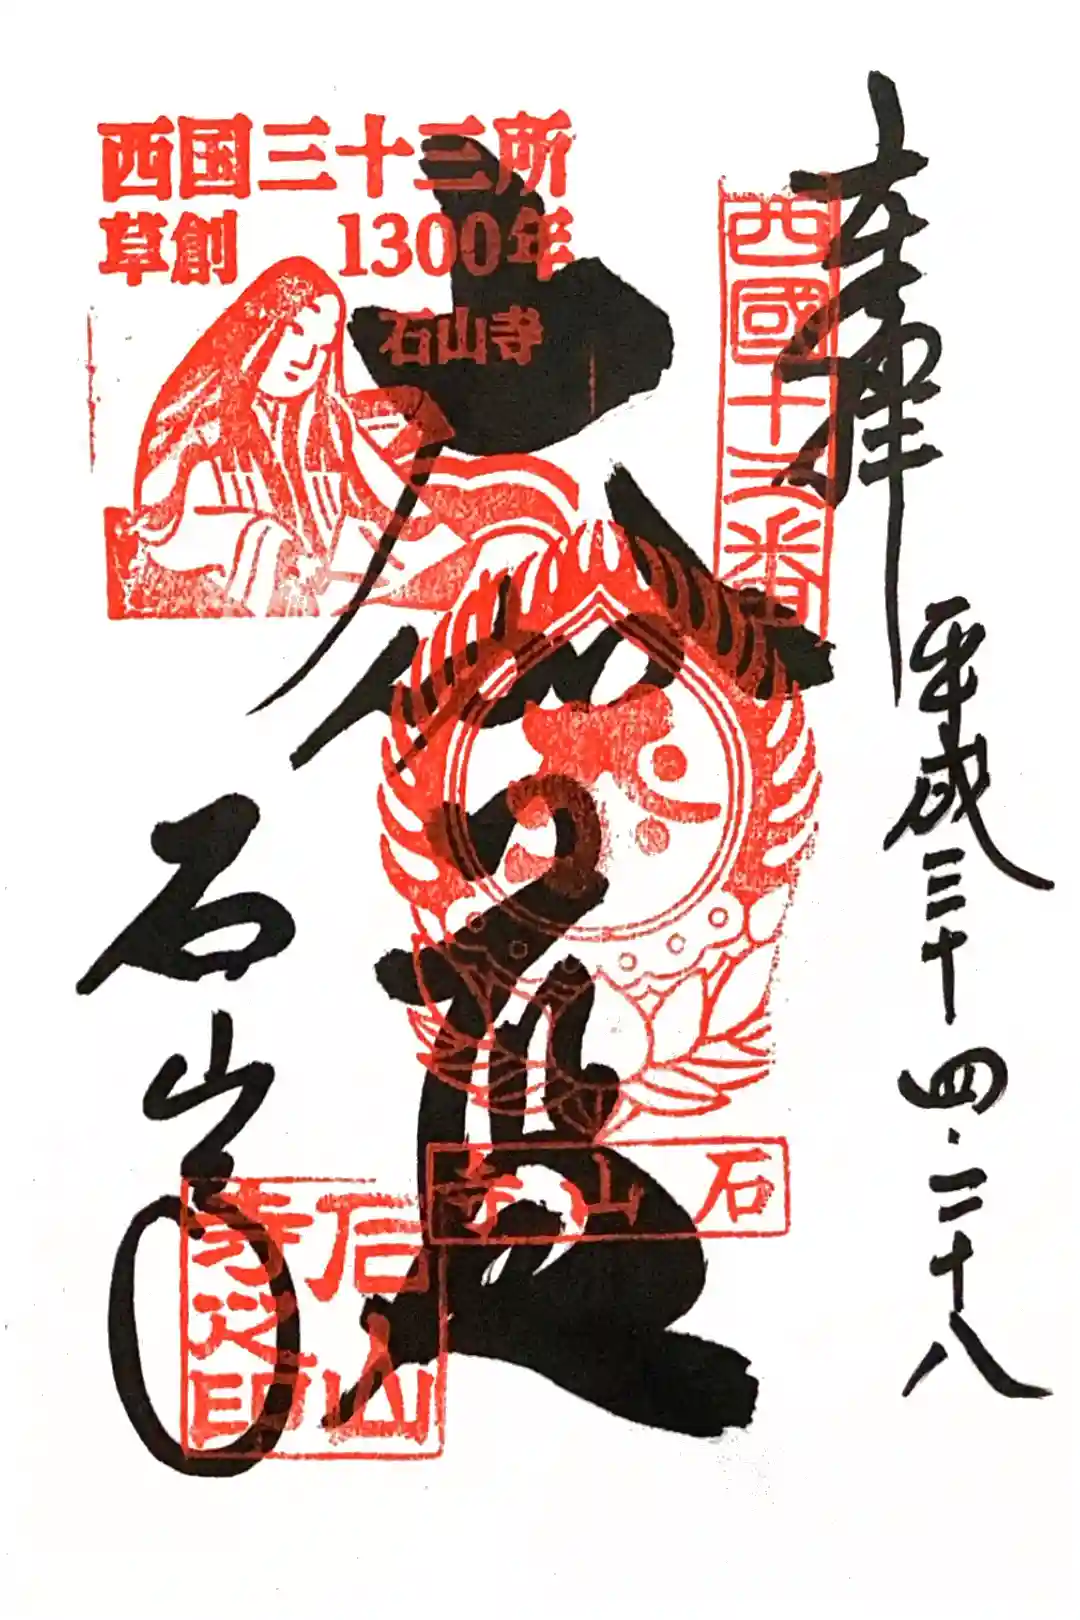 奉拝
平成三十 四・二十八
西國十三番
大伽藍
西国三十三所
草創 1300年
石山寺
石山寺
石山寺
石山寺之印